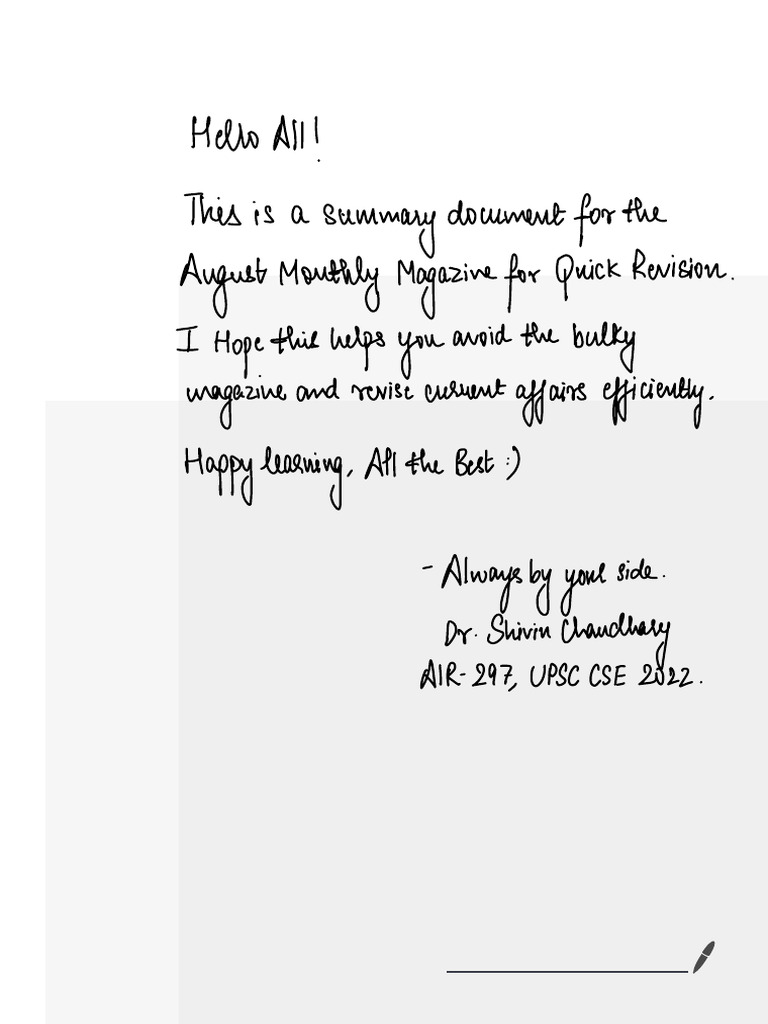 Hello All!
This is a summary document for the
August Monthly Magazine for Quick Revision.
I Hope this helps you avoid the bulky
magazine and revise current affairs efficiently.
Happy learning, All the Best :)
- Always by your side.
Dr. Shivin Chaudhary
AIR-297, UPSC CSE 2022.